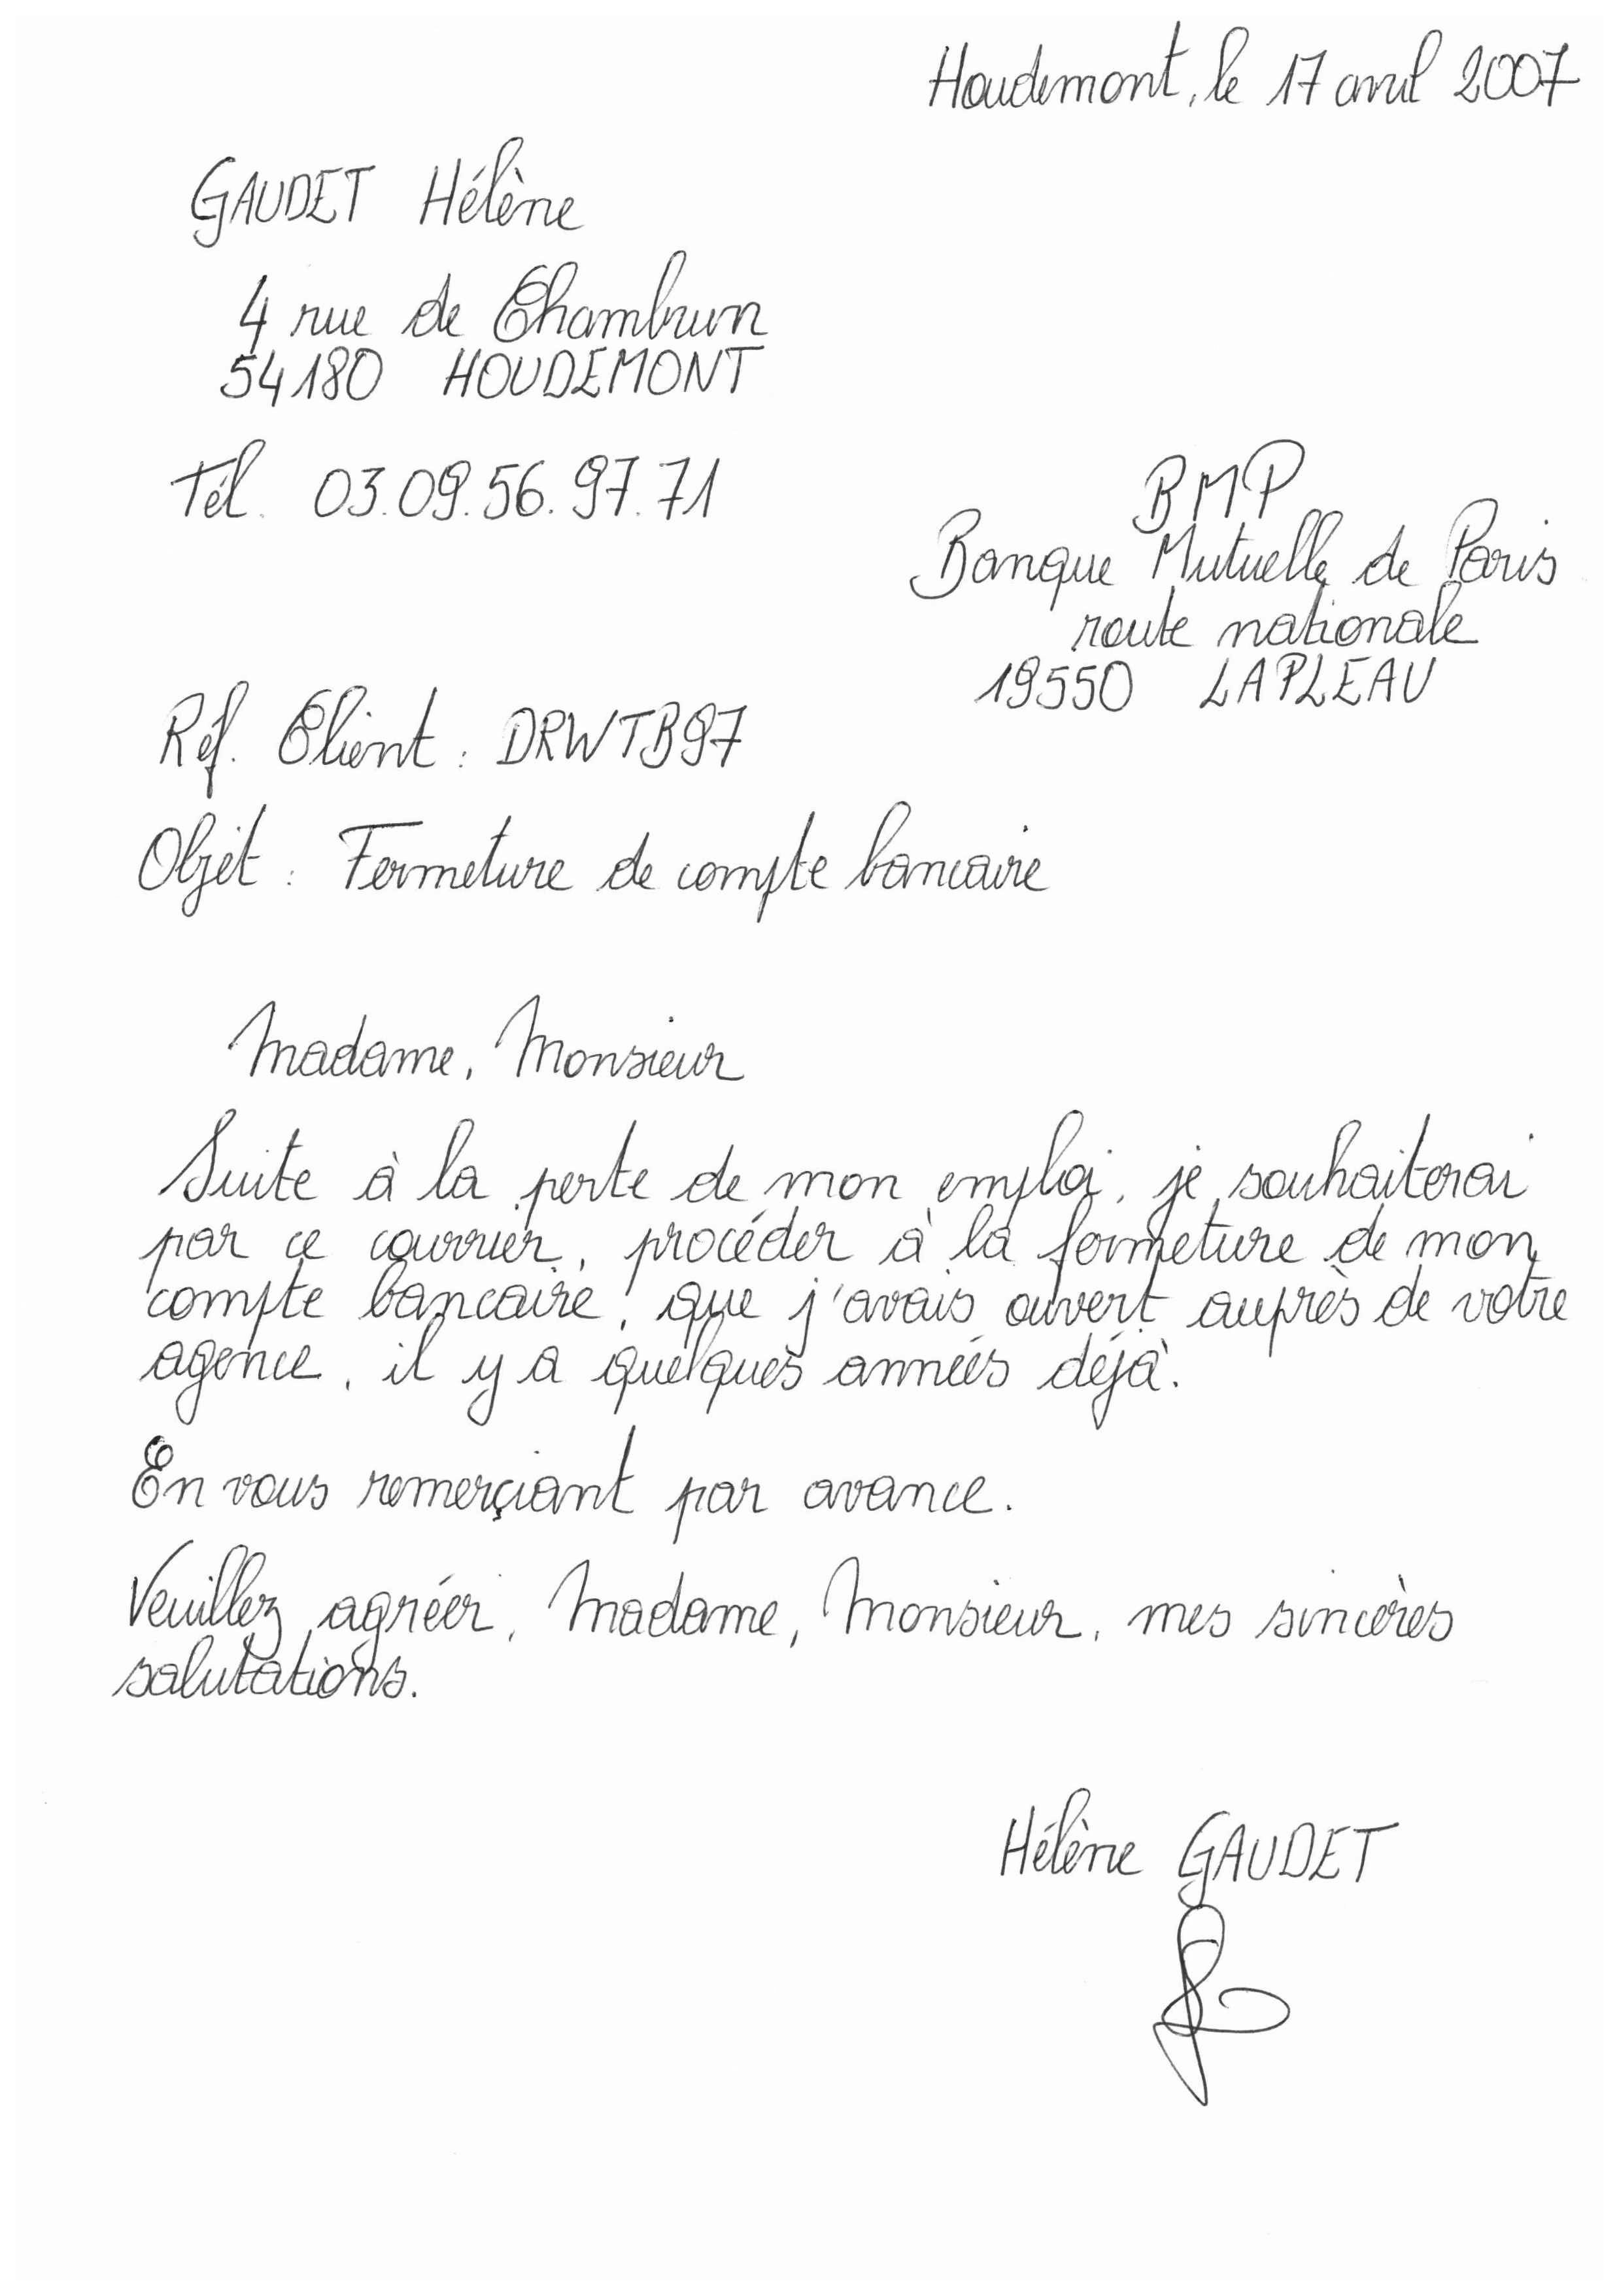 Houdemont, le 17 avril 2007
GAUDET Hélène
4 rue de Chambrun
54180 HOUDEMONT
Tél. 03.09.56.97.71
BMP
Banque Mutuelle de Paris
route nationale
19550 LAPLEAU
Réf. Client : DRWTB97
Objet : Fermeture de compte bancaire
Madame, Monsieur
Suite à la perte de mon emploi, je souhaiterai
par ce courrier, procéder à la fermeture de mon
compte bancaire, que j'avais ouvert auprès de votre
agence, il y a quelques années déjà.
En vous remerçiant par avance.
Veuillez agréer, Madame, Monsieur, mes sincères
salutations.
Hélène GAUDET